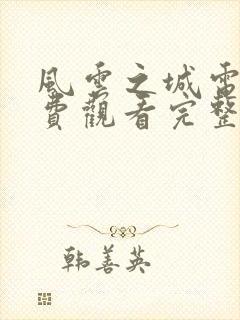 風雲之城電
費觀看完整
韩善英